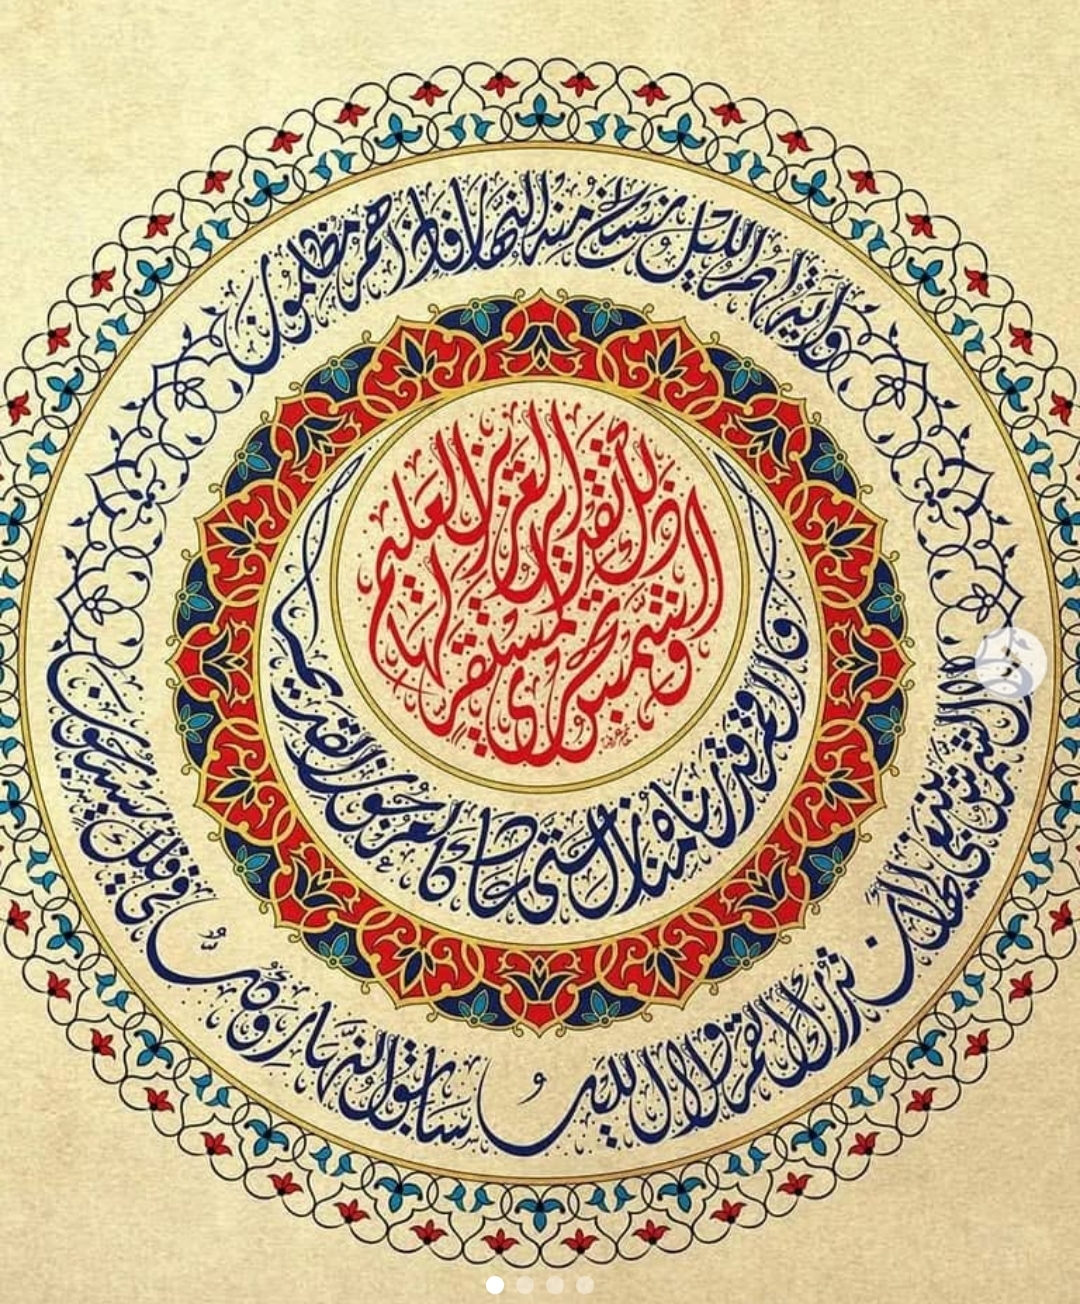 وآية لهم الليل نسلخ منه النهار فإذا هم مظلمون
والشمس تجري لمستقر لها
ذلك تقدير العزيز العليم
والقمر قدرناه منازل حتى عاد كالعرجون القديم
لا الشمس ينبغي لها أن تدرك القمر ولا الليل سابق النهار وكل في فلك يسبحون